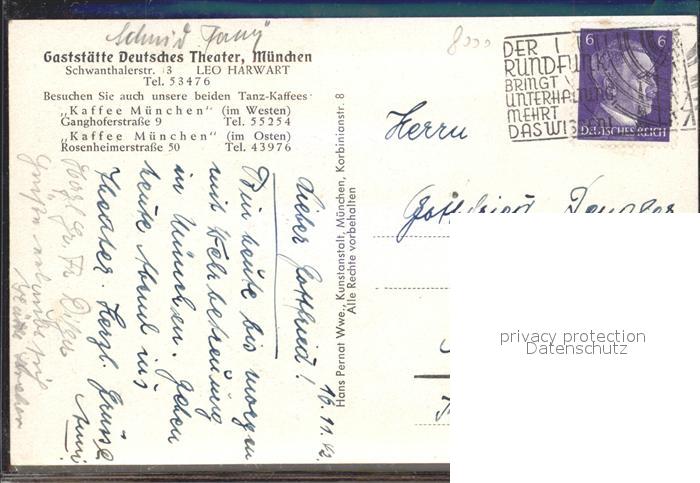 Schmid Fanny
Gaststätte Deutsches Theater, München
Schwanthalerstr. 13 LEO HARWART
Tel. 53476
Besuchen Sie auch unsere beiden Tanz-Kaffees:
„Kaffee München“ (im Westen)
Ganghoferstraße 9 Tel. 55254
„Kaffee München“ (im Osten)
Rosenheimerstraße 50 Tel. 43976
16.11.43.
Lieber Gottfried!
Bin heute bis morgen
mit Wehrbetreuung
in München. Gehen
heute Abend ins
Theater. Herzl. Grüsse
Anni
Herzl.
Grüße
Hans Pernat Wwe., Kunstanstalt, München, Korbinianstr. 8
Alle Rechte vorbehalten
DER
RUNDFUNK
BRINGT
UNTERHALTUNG
MEHRT
DAS WISSEN
6 6
DEUTSCHES REICH
Herrn
Gottfried
privacy protection
Datenschutz